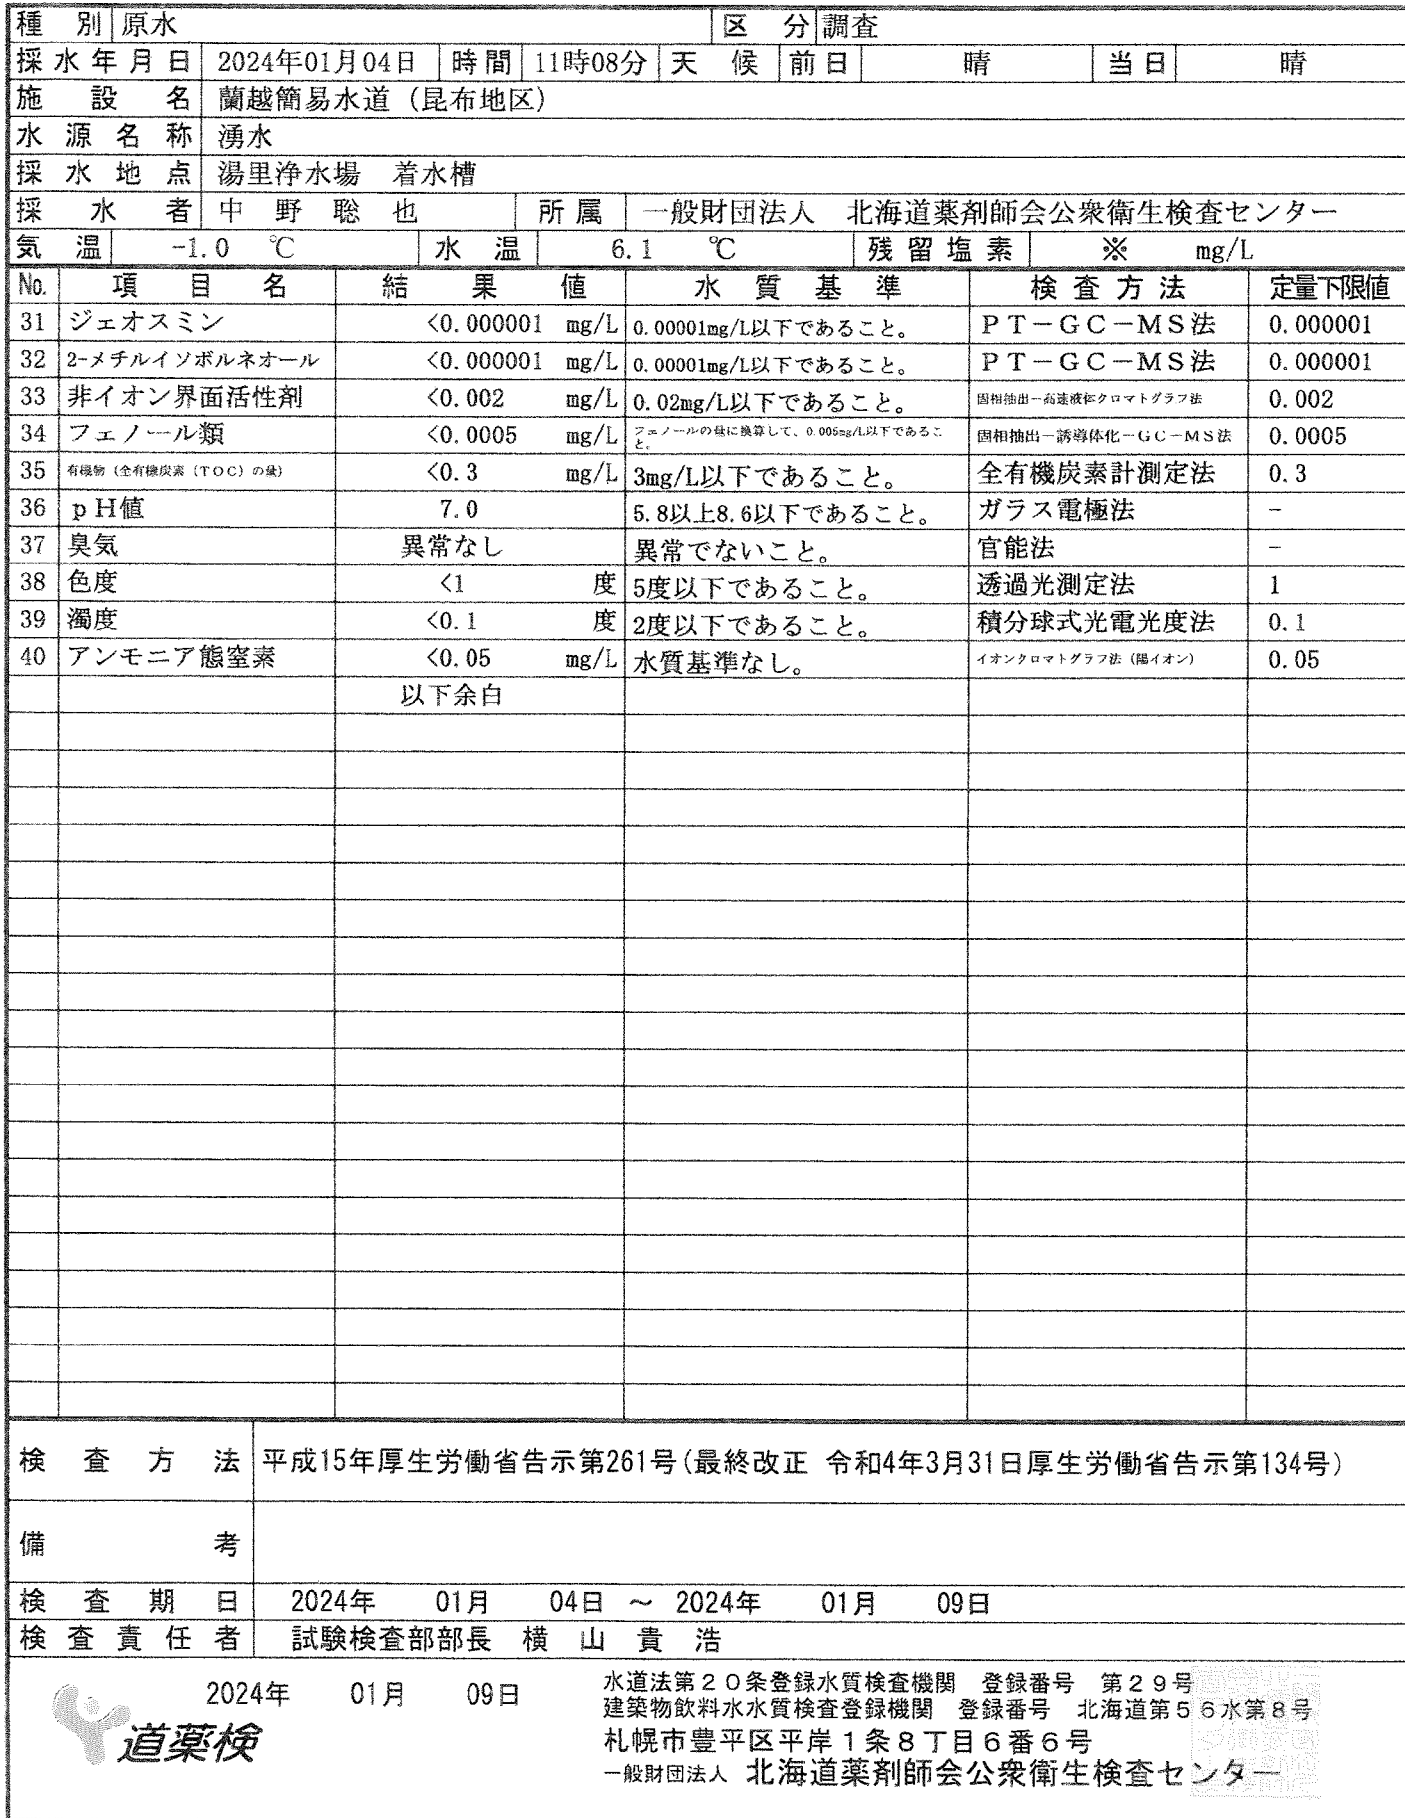 種 別 原水 区 分 調査
採水年月日 2024年01月04日 時間 11時08分 天 候 前日 晴 当日 晴
施 設 名 蘭越簡易水道（昆布地区）
水 源 名 称 湧水
採 水 地 点 湯里浄水場 着水槽
採 水 者 中 野 聡 也 所属 一般財団法人 北海道薬剤師会公衆衛生検査センター
気 温 -1.0 ℃ 水 温 6.1 ℃ 残留塩素 ※ mg/L
No. 項 目 名 結 果 値 水 質 基 準 検査方法 定量下限値
31 ジェオスミン <0.000001 mg/L 0.00001mg/L以下であること。 ＰＴ－ＧＣ－ＭＳ法 0.000001
32 2-メチルイソボルネオール <0.000001 mg/L 0.00001mg/L以下であること。 ＰＴ－ＧＣ－ＭＳ法 0.000001
33 非イオン界面活性剤 <0.002 mg/L 0.02mg/L以下であること。 固相抽出－高速液体クロマトグラフ法 0.002
34 フェノール類 <0.0005 mg/L フェノールの量に換算して、0.005mg/L以下であること。 固相抽出－誘導体化－ＧＣ－ＭＳ法 0.0005
35 有機物（全有機炭素（ＴＯＣ）の量） <0.3 mg/L 3mg/L以下であること。 全有機炭素計測定法 0.3
36 ｐＨ値 7.0 5.8以上8.6以下であること。 ガラス電極法 -
37 臭気 異常なし 異常でないこと。 官能法 -
38 色度 <1 度 5度以下であること。 透過光測定法 1
39 濁度 <0.1 度 2度以下であること。 積分球式光電光度法 0.1
40 アンモニア態窒素 <0.05 mg/L 水質基準なし。 イオンクロマトグラフ法（陽イオン） 0.05
以下余白
検 査 方 法 平成15年厚生労働省告示第261号(最終改正 令和4年3月31日厚生労働省告示第134号)
備 考
検 査 期 日 2024年 01月 04日 ～ 2024年 01月 09日
検 査 責 任 者 試験検査部部長 横 山 貴 浩
2024年 01月 09日
道薬検
水道法第２０条登録水質検査機関 登録番号 第２９号
建築物飲料水水質検査登録機関 登録番号 北海道第５６水第８号
札幌市豊平区平岸１条８丁目６番６号
一般財団法人 北海道薬剤師会公衆衛生検査センター